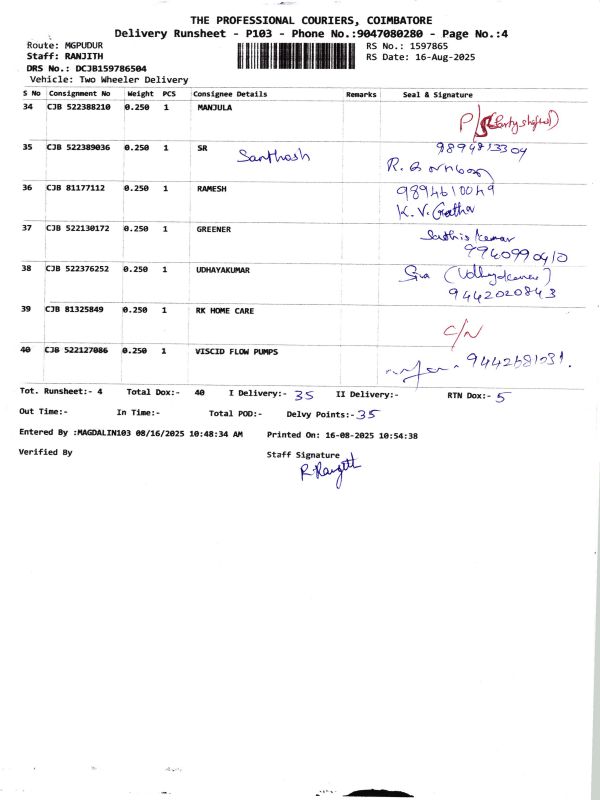 THE PROFESSIONAL COURIERS, COIMBATORE
Delivery Runsheet - P103 - Phone No.:9047080280 - Page No.:4
Route: MGPUDUR
RS No.: 1597865
Staff: RANJITH
RS Date: 16-Aug-2025
DRS No.: DCJB159786504
Vehicle: Two Wheeler Delivery
S No Consignment No Weight PCS Consignee Details Remarks Seal & Signature
34 CJB 522388210 0.250 1 MANJULA
35 CJB 522389036 0.250 1 SR Santhosh
36 CJB 81177112 0.250 1 RAMESH 9894610049
K.V. Geetha
37 CJB 522130172 0.250 1 GREENER Sathis kumar
9940990410
38 CJB 522376252 0.250 1 UDHAYAKUMAR Siva (Udhayakumar)
9442020843
39 CJB 81325849 0.250 1 RK HOME CARE
C/N
40 CJB 522127086 0.250 1 VISCID FLOW PUMPS 9442681031.
Tot. Runsheet:- 4 Total Dox:- 40 I Delivery:- 35 II Delivery:- RTN Dox:- 5
Out Time:- In Time:- Total POD:- Delvy Points:- 35
Entered By :MAGDALIN103 08/16/2025 10:48:34 AM Printed On: 16-08-2025 10:54:38
Verified By Staff Signature